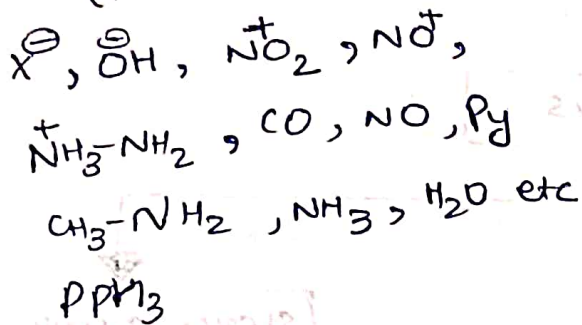 X⊖, ⊖OH, N⁺O₂, NO⁺,
N⁺H₃-NH₂, CO, NO, Py
CH₃-NH₂, NH₃, H₂O etc
PPh₃